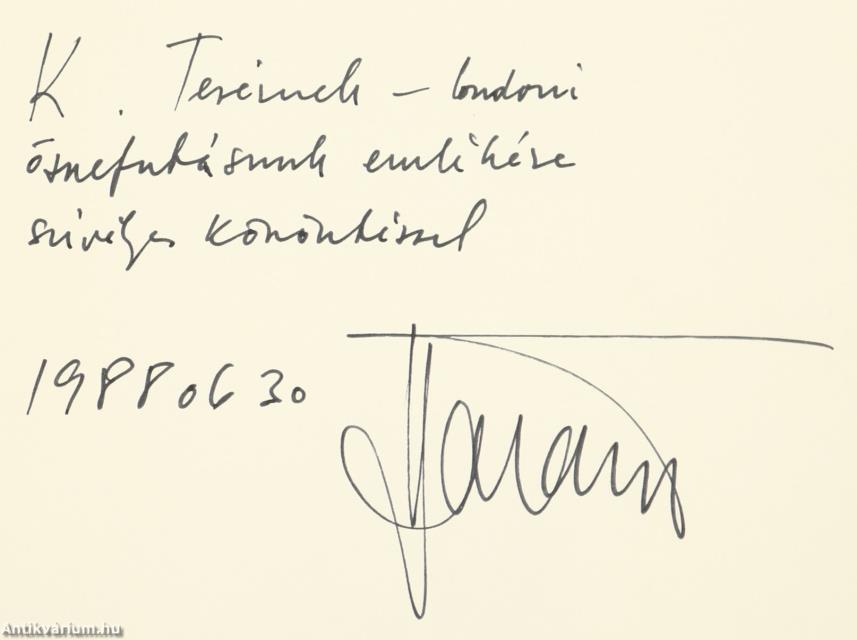 K. Terénnek – londoni
összefutásunk emlékére
szívélyes köszöntéssel
1988 06 30
Antikvárium.hu